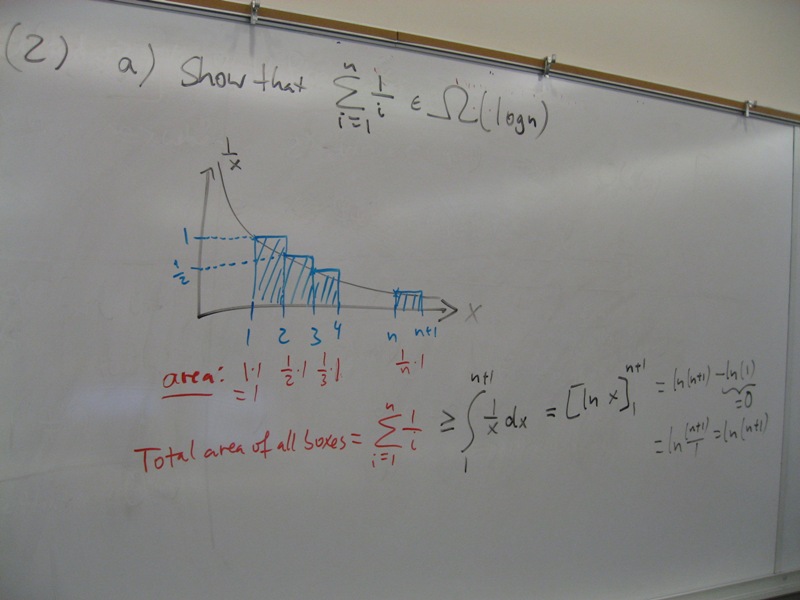 (2) a) Show that ∑_{i=1}^{n} 1/i ∈ Ω(log n)
1/x
1
1/2
x
1 2 3 4 n n+1
area: 1·1 1/2·1 1/3·1 1/n·1
= 1
Total area of all boxes = ∑_{i=1}^{n} 1/i ≥ ∫_{1}^{n+1} 1/x dx = [ln x]_{1}^{n+1} = ln(n+1) - ln(1)
= 0
= ln (n+1)/1 = ln(n+1)